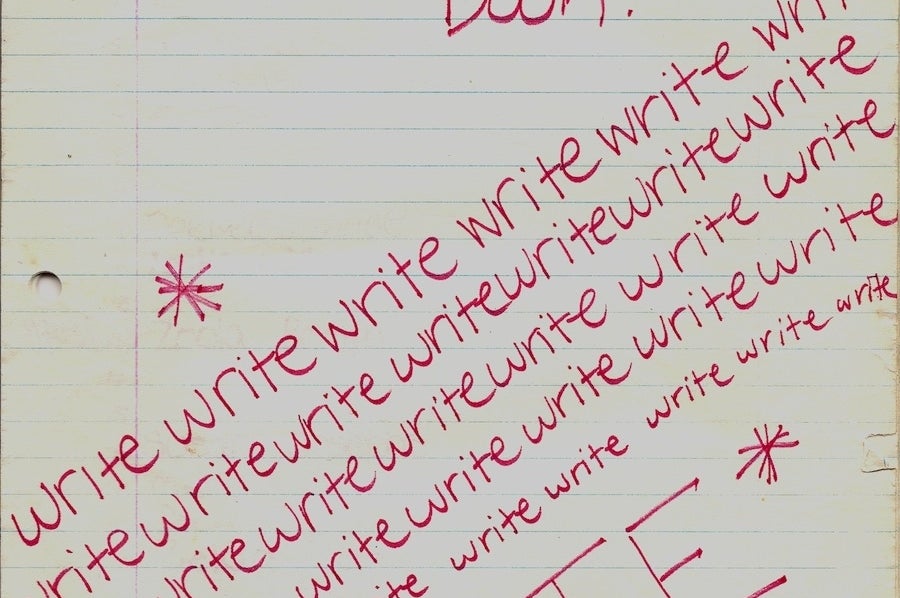 write write write write write
write write write write write write
write write write write write
write write write write write
write write write write write
TE